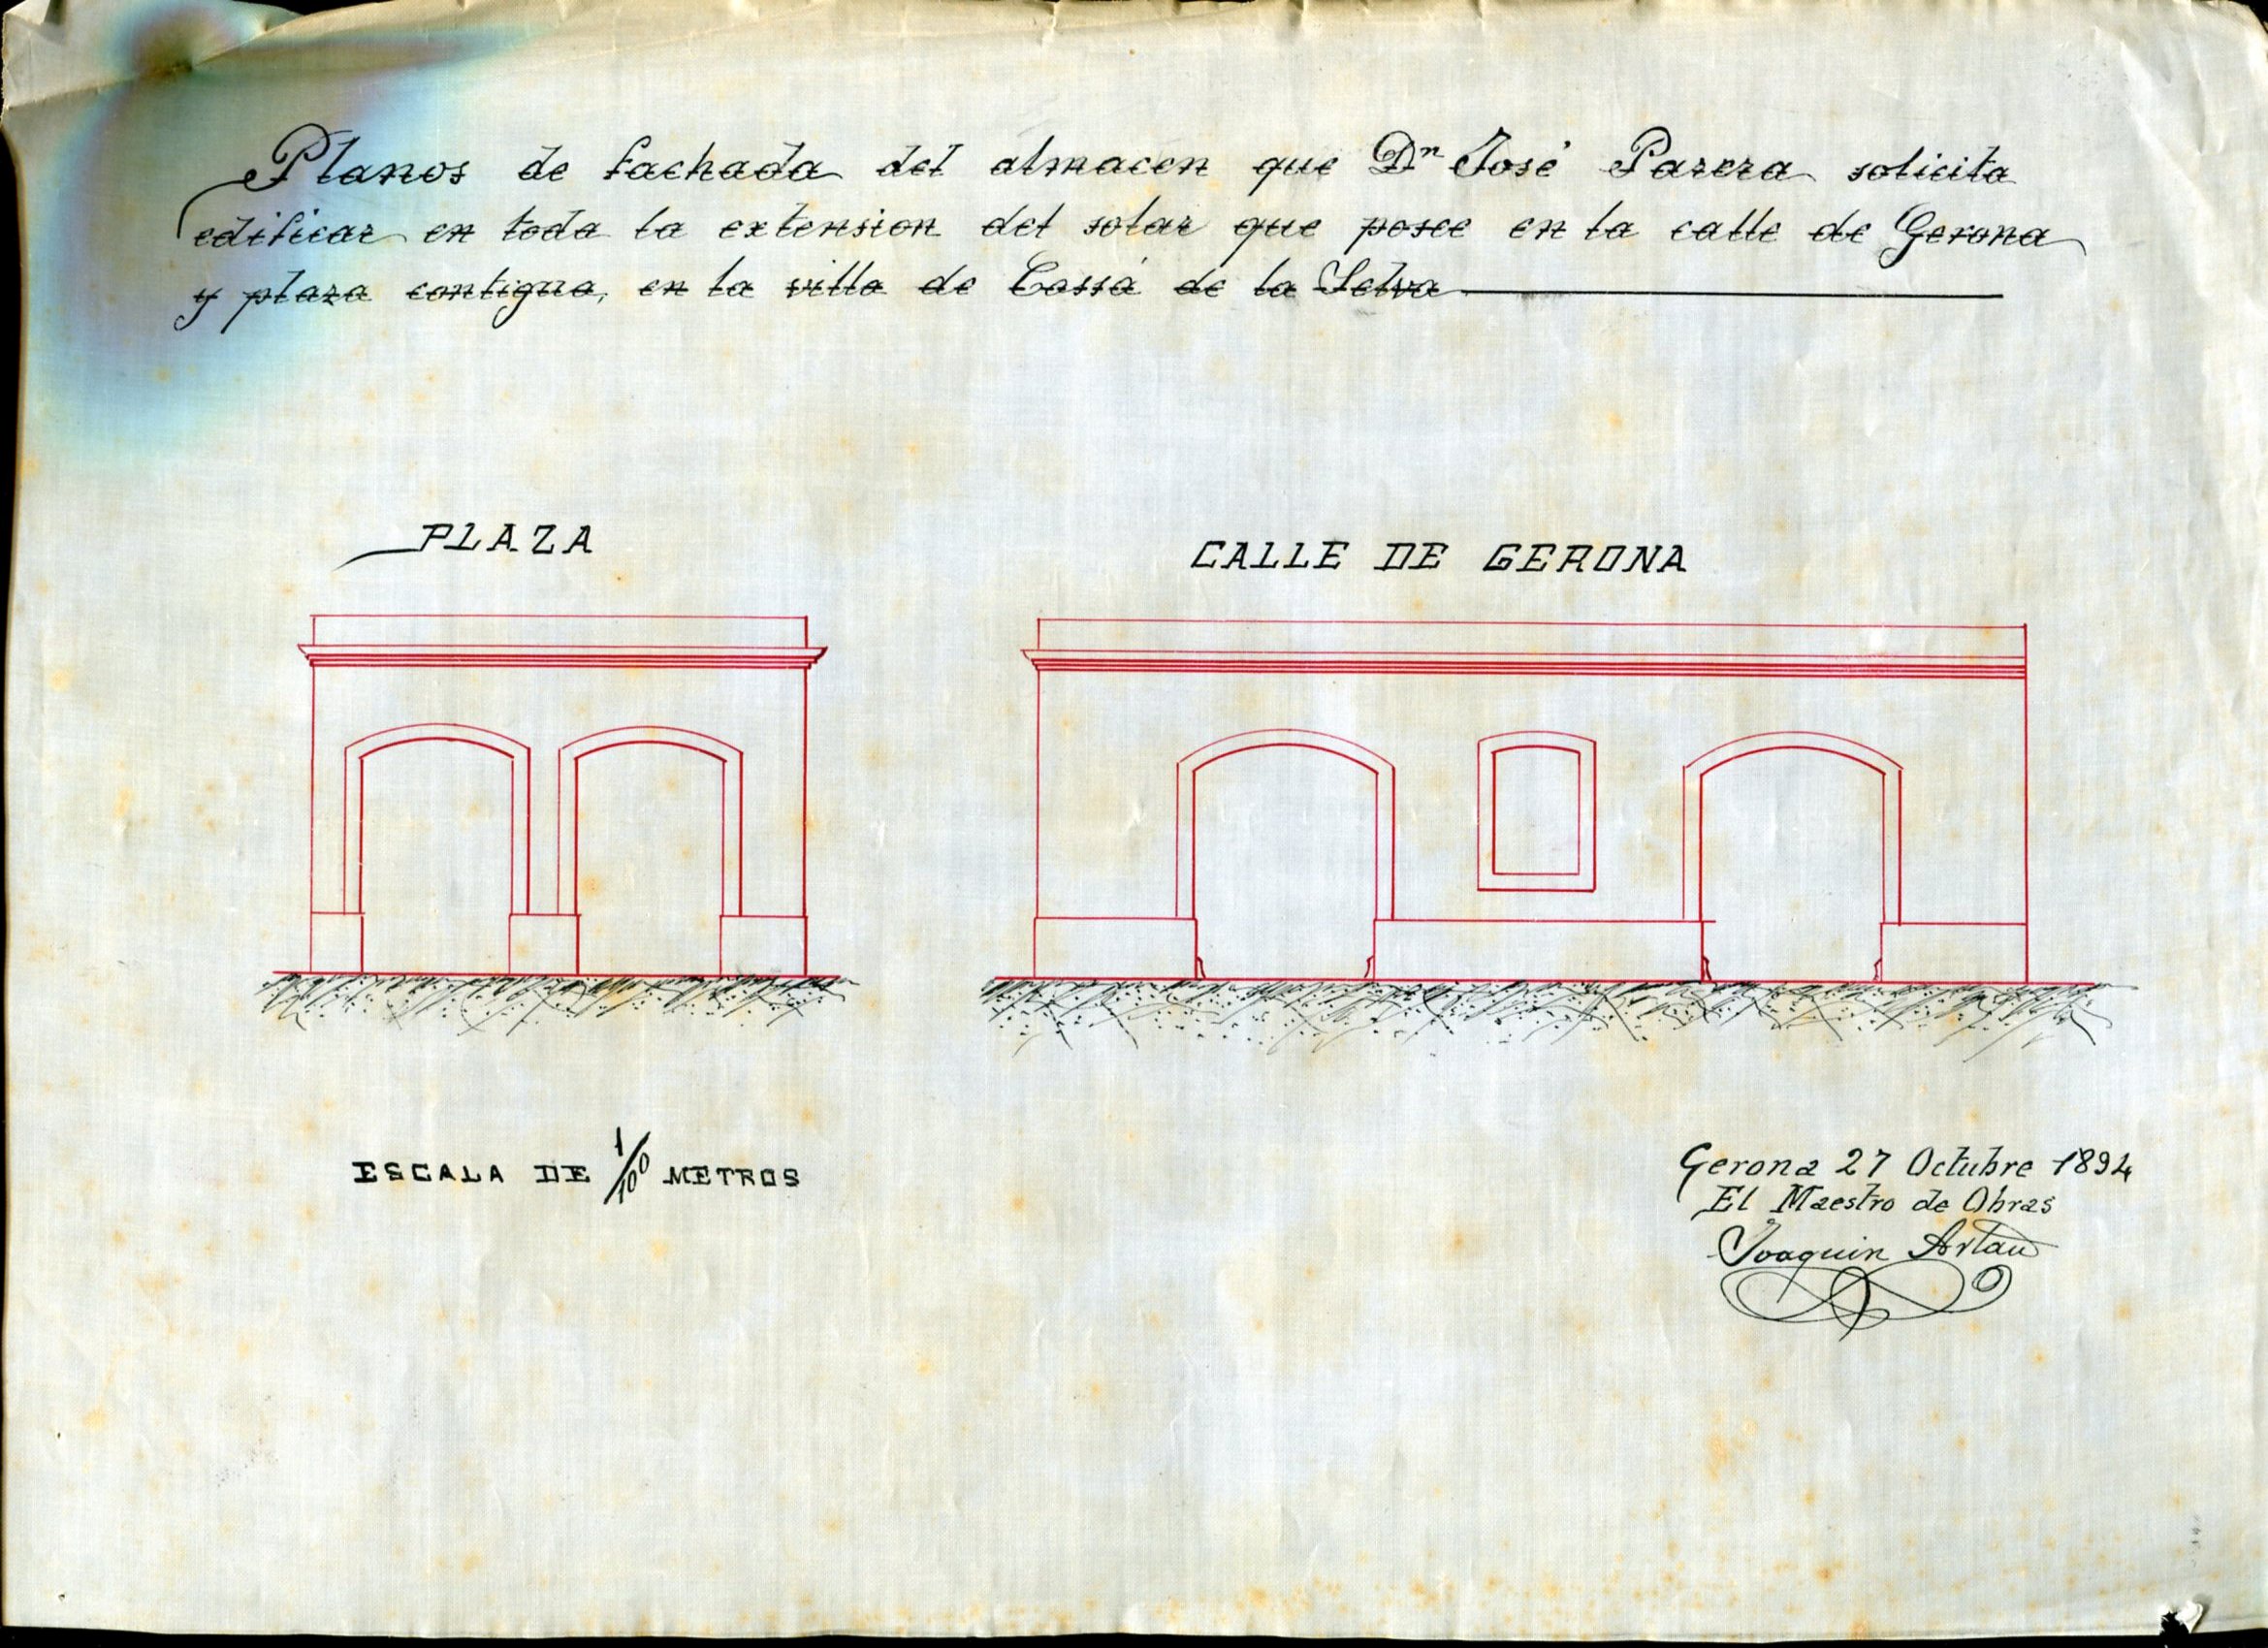 Planos de fachada del almacen que Dn José Parera solicita
edificar en toda la extension del solar que posee en la calle de Gerona
y plaza contigua, en la villa de Cassá de la Selva
PLAZA
CALLE DE GERONA
ESCALA DE 1/100 METROS
Gerona 27 Octubre 1894
El Maestro de Obras
Joaquin Artau